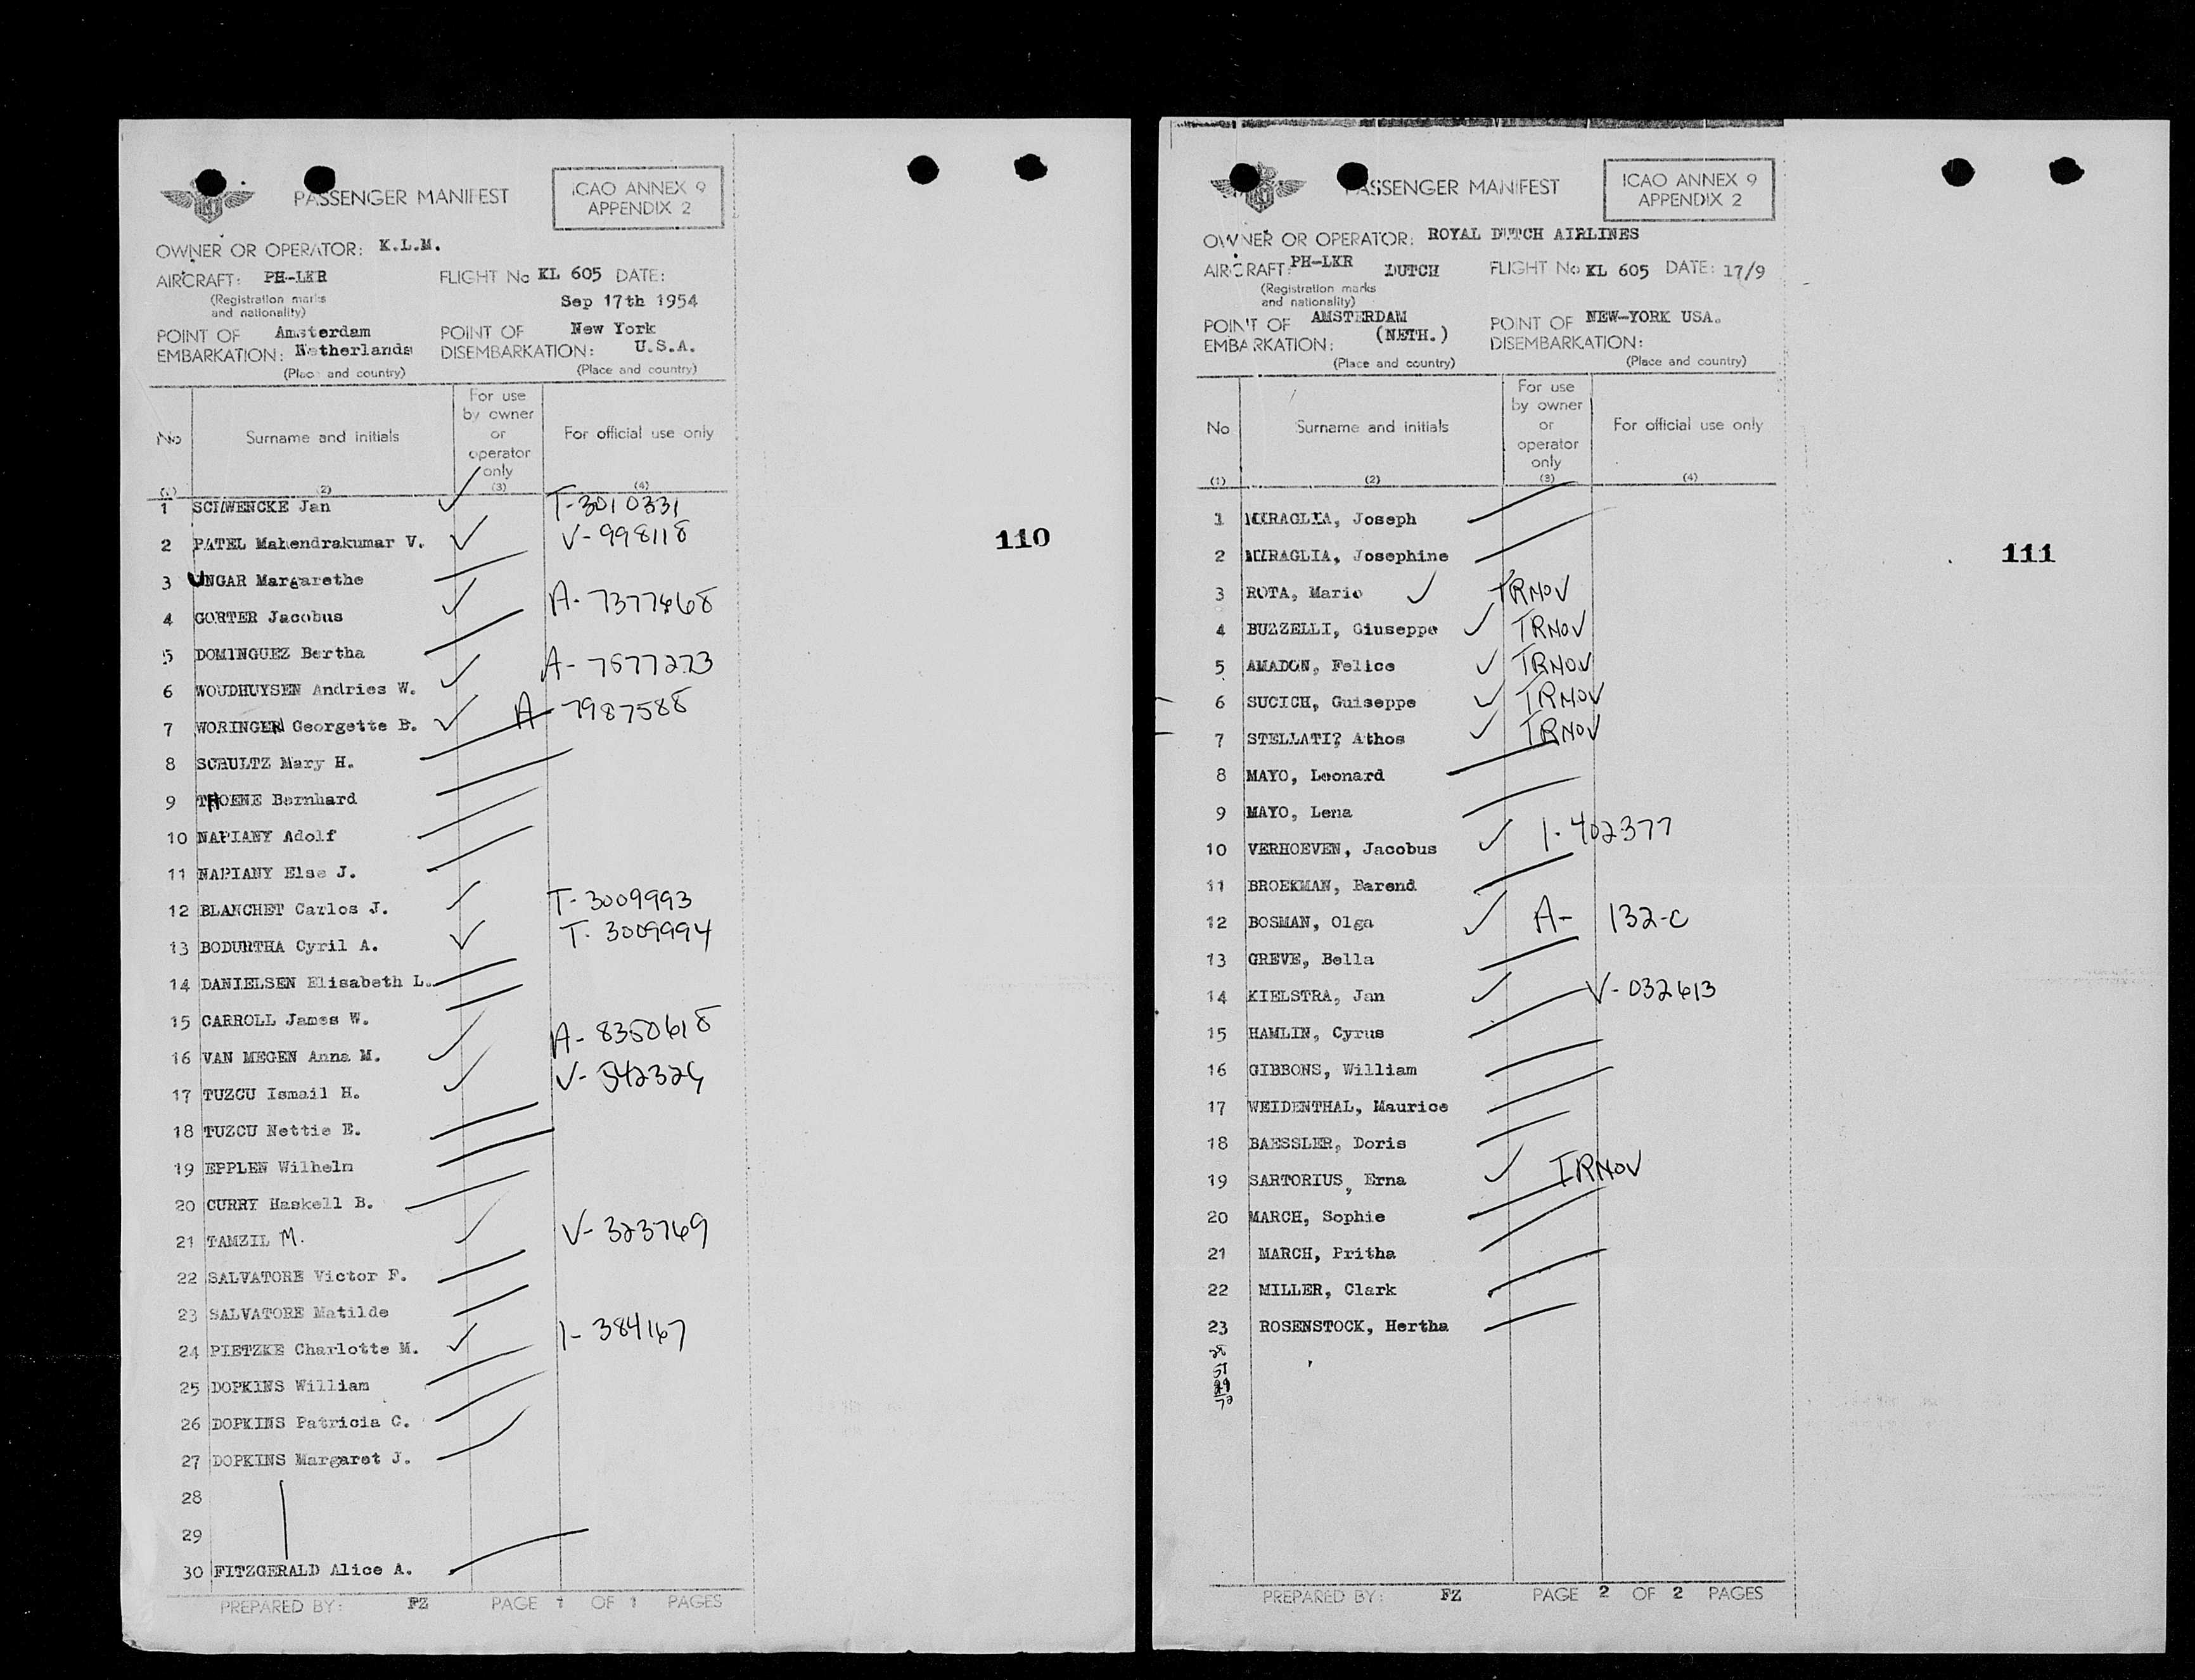 PASSENGER MANIFEST
ICAO ANNEX 9
APPENDIX 2
OWNER OR OPERATOR: K.L.M.
AIRCRAFT: PH-LKR FLIGHT No KL 605 DATE:
(Registration marks
and nationality)
Sep 17th 1954
POINT OF Amsterdam POINT OF New York
EMBARKATION: Netherlands DISEMBARKATION: U.S.A.
(Place and country) (Place and country)
No Surname and initials For use by owner or operator only For official use only
(1) (2) (3) (4)
1 SCHWENCKE Jan ✓ T-3010331
2 PATEL Mahendrakumar V. ✓ V-998118
3 UNGAR Margarethe
4 GORTER Jacobus ✓ A-7377468
5 DOMINGUEZ Bertha
6 WOUDHUYSEN Andries W. ✓ A-7577273
7 WORINGEN Georgette B. ✓ A-7987588
8 SCHULTZ Mary H.
9 THOENE Bernhard
10 NAPIANY Adolf
11 NAPIANY Else J.
12 BLANCHET Carlos J. ✓ T-3009993
13 BODURTHA Cyril A. ✓ T-3009994
14 DANIELSEN Elisabeth L.
15 CARROLL James W.
16 VAN MEGEN Anna M. ✓ A-8350618
17 TUZCU Ismail H. ✓ V-542324
18 TUZCU Nettie E.
19 EPPLEN Wilhelm
20 CURRY Haskell B.
21 TAMZIL M. ✓ V-323769
22 SALVATORE Victor F.
23 SALVATORE Matilde
24 PIETZKE Charlotte M. ✓ I-384167
25 DOPKINS William
26 DOPKINS Patricia C.
27 DOPKINS Margaret J.
28
29
30 FITZGERALD Alice A.
PREPARED BY: FZ PAGE 1 OF 1 PAGES
110
PASSENGER MANIFEST
ICAO ANNEX 9
APPENDIX 2
OWNER OR OPERATOR: ROYAL DUTCH AIRLINES
AIRCRAFT: PH-LKR DUTCH FLIGHT No KL 605 DATE: 17/9
(Registration marks
and nationality)
POINT OF AMSTERDAM POINT OF NEW-YORK USA.
EMBARKATION: (NETH.) DISEMBARKATION:
(Place and country) (Place and country)
No Surname and initials For use by owner or operator only For official use only
(1) (2) (3) (4)
1 MIRAGLIA, Joseph
2 MIRAGLIA, Josephine
3 ROTA, Mario ✓ TRNOV
4 BUZZELLI, Giuseppe ✓ TRNOV
5 AMADON, Felice ✓ TRNOV
6 SUCICH, Guiseppe ✓ TRNOV
7 STELLATI? Athos ✓ TRNOV
8 MAYO, Leonard
9 MAYO, Lena
10 VERHOEVEN, Jacobus ✓ I-402377
11 BROEKMAN, Barend
12 BOSMAN, Olga ✓ A-132-C
13 GREVE, Bella
14 KIELSTRA, Jan ✓ V-032613
15 HAMLIN, Cyrus
16 GIBBONS, William
17 WEIDENTHAL, Maurice
18 BAESSLER, Doris
19 SARTORIUS, Erna ✓ TRNOV
20 MARCH, Sophie
21 MARCH, Pritha
22 MILLER, Clark
23 ROSENSTOCK, Hertha
PREPARED BY: FZ PAGE 2 OF 2 PAGES
111